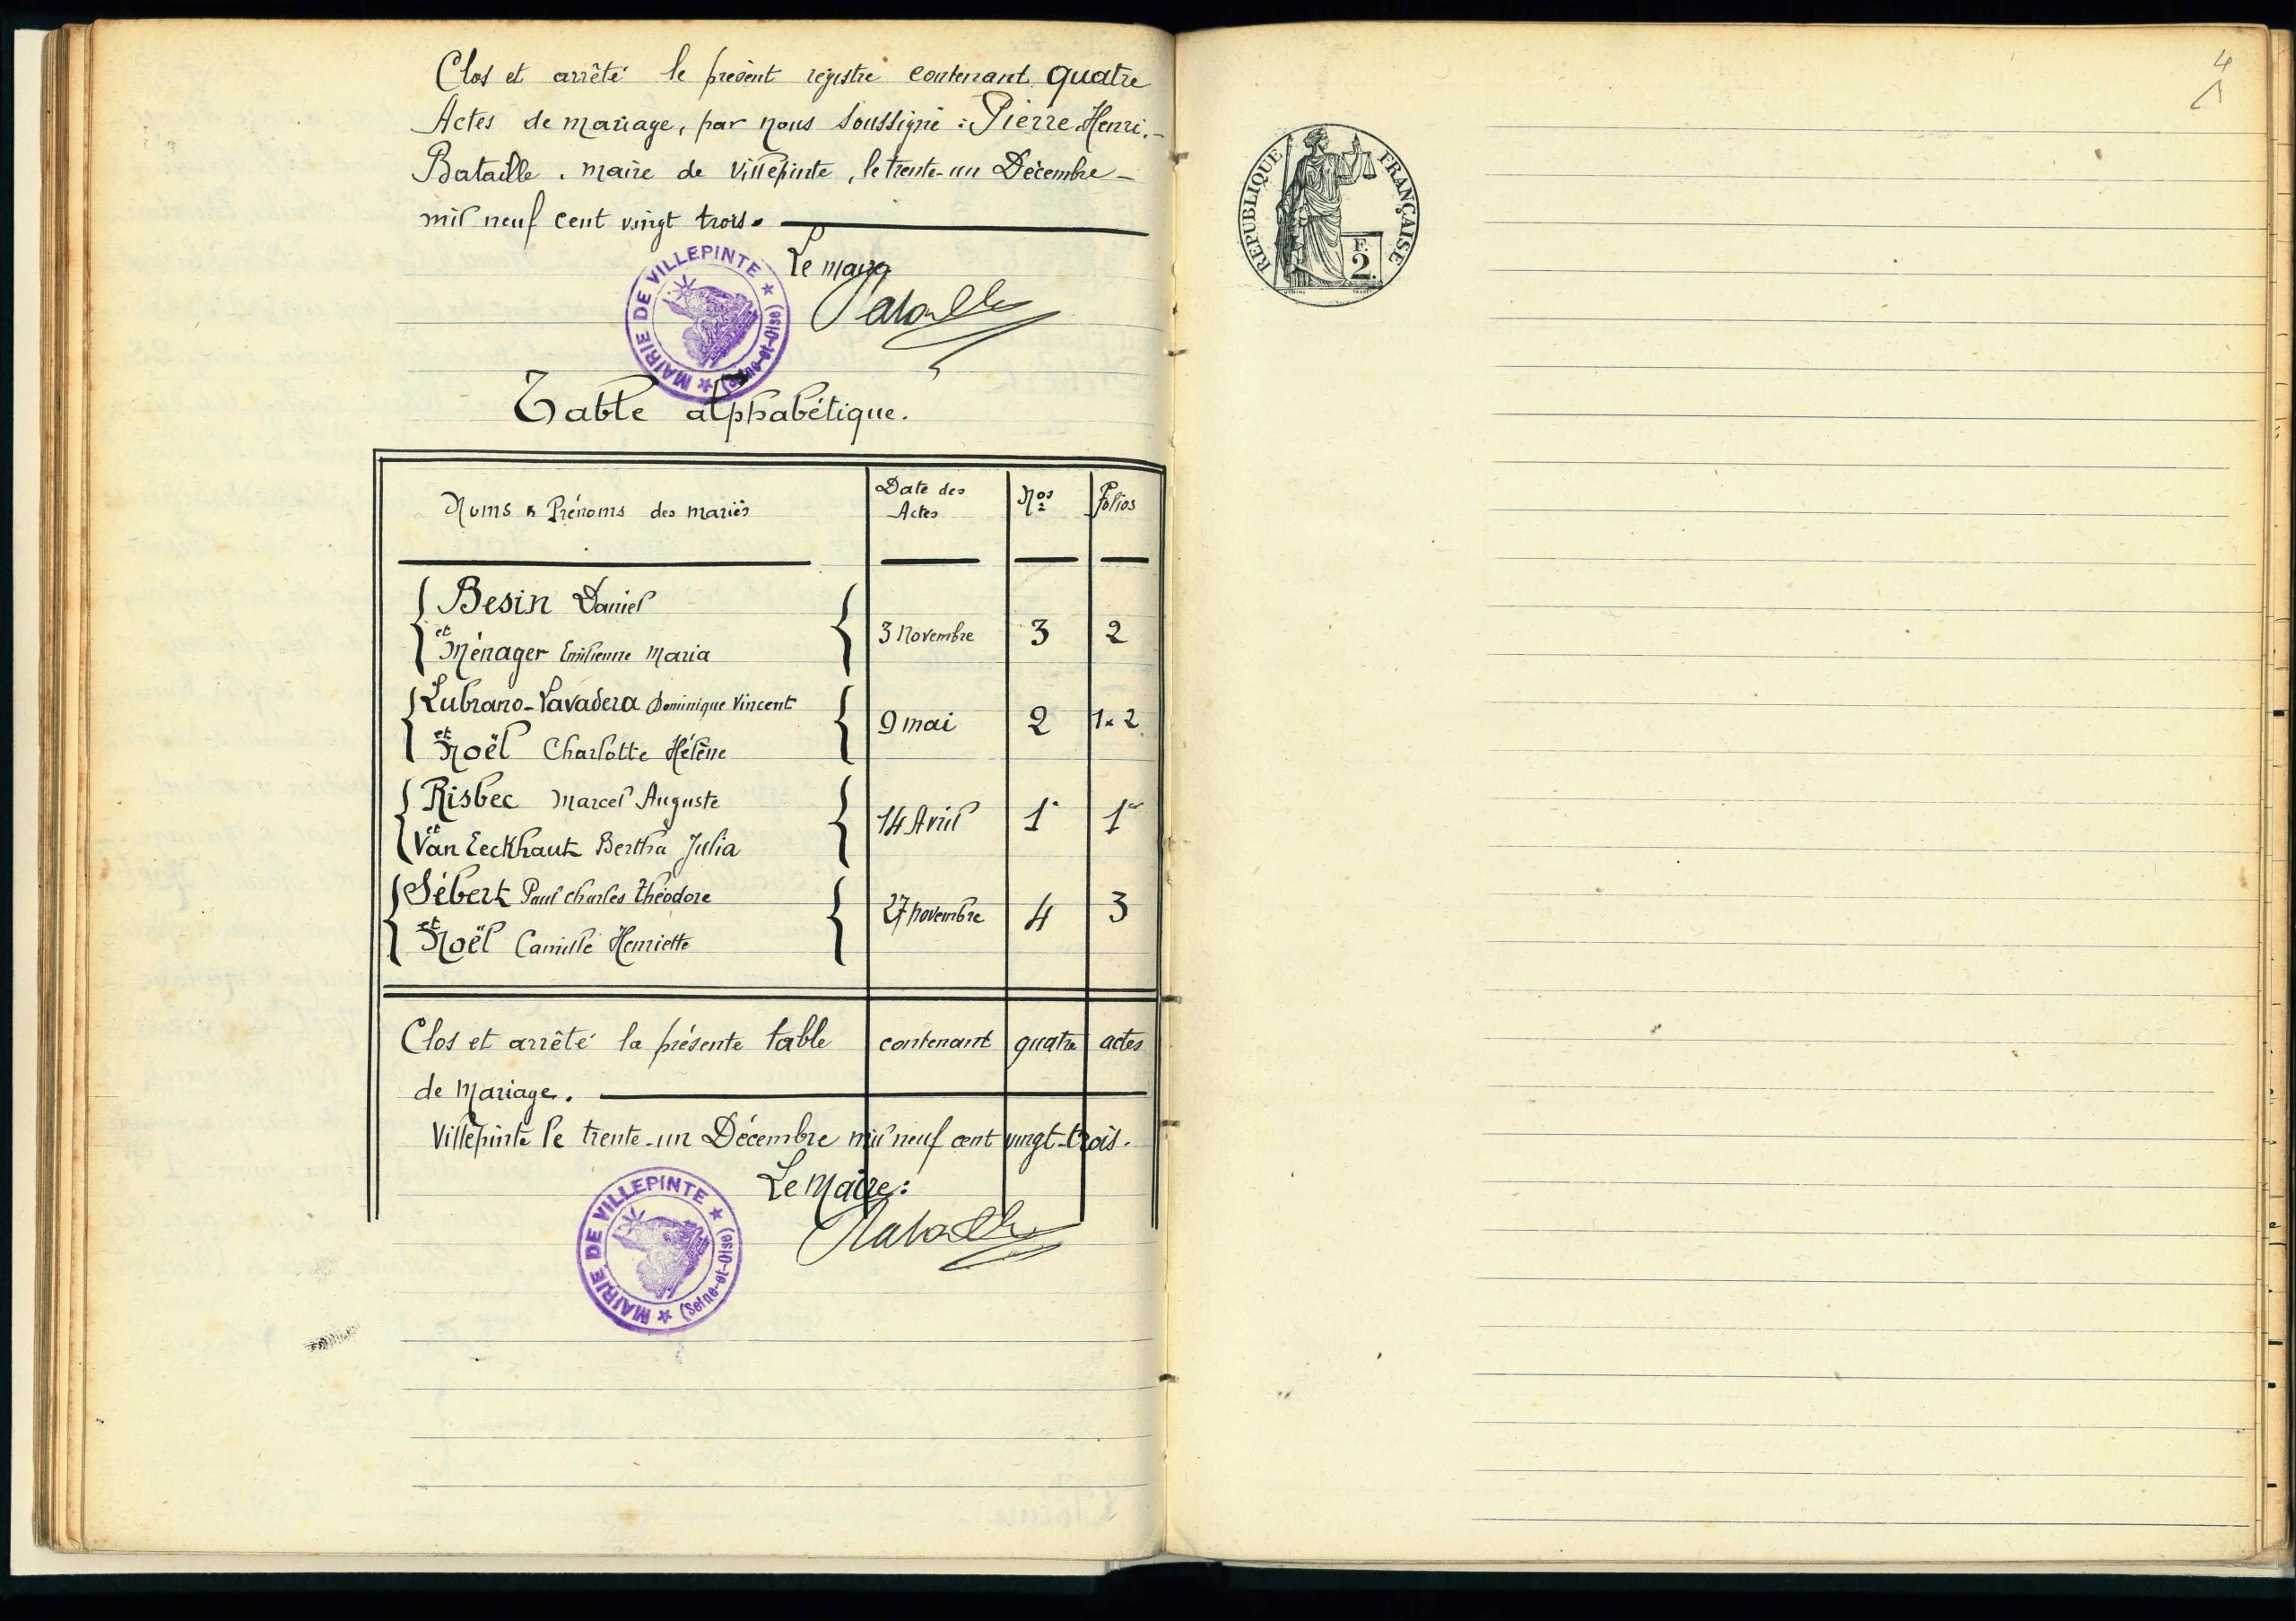 Clos et arrêté le présent registre contenant quatre
Actes de mariage, par nous soussigné : Pierre Henri.-
Bataille. maire de Villepinte, le trente-un Décembre -
mil neuf cent vingt trois.
Le maire
MAIRIE DE VILLEPINTE ★ (Seine-et-Oise) ★
Table alphabétique.
Noms & Prénoms des mariés Date des Actes Nos Folios
Besin Daniel
et Ménager Emilienne Maria 3 Novembre 3 2
Lubrano-Lavadera Dominique Vincent
et Noël Charlotte Hélène 9 mai 2 1 & 2
Risbec Marcel Auguste
et Van Eeckhaut Bertha Julia 14 Avril 1er 1er
Sébert Paul Charles Théodore
et Noël Camille Henriette 27 novembre 4 3
Clos et arrêté la présente table contenant quatre actes
de Mariage.
Villepinte le trente-un Décembre mil neuf cent vingt-trois.
Le Maire :
MAIRIE DE VILLEPINTE ★ (Seine-et-Oise) ★
4
REPUBLIQUE FRANÇAISE
F.
2.